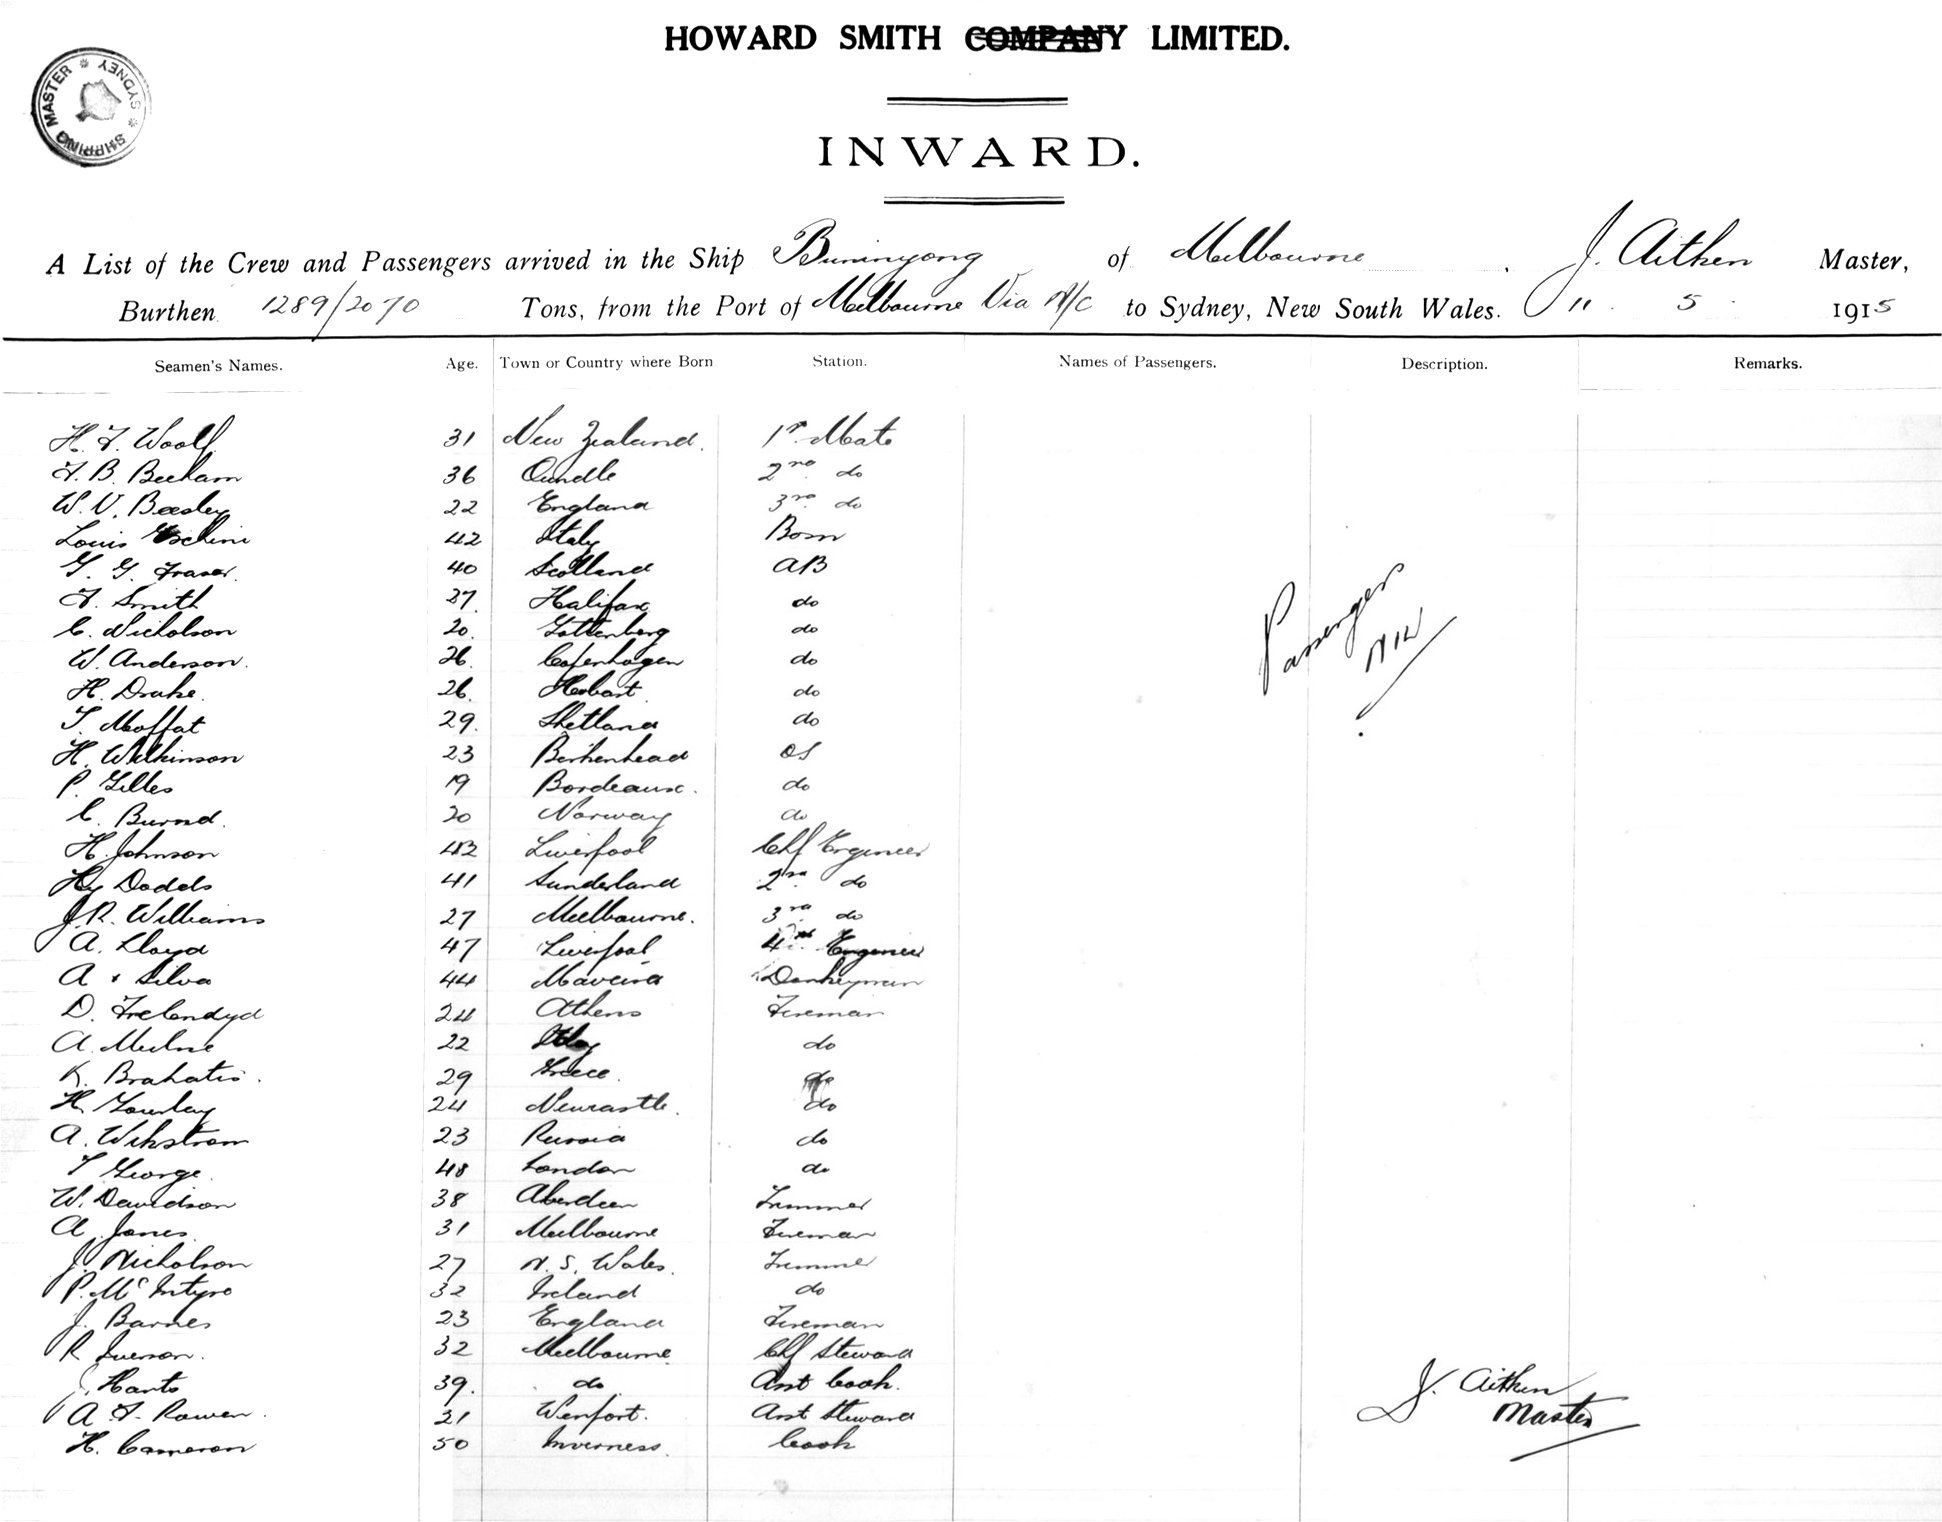 HOWARD SMITH COMPANY LIMITED.
SHIPPING MASTER * SYDNEY *
INWARD.
A List of the Crew and Passengers arrived in the Ship Buninyong of Melbourne, J. Aitken Master,
Burthen 1289/2070 Tons, from the Port of Melbourne Via N/C to Sydney, New South Wales. 11 . 5 . 1915
Seamen's Names. Age. Town or Country where Born Station. Names of Passengers. Description. Remarks.
H. F. Woolf 31 New Zealand. 1st Mate
F. B. Beeham 36 Oundle 2nd do
W. V. Beesley 22 England 3rd do
Louis 42 Italy Bosn
G. G. Fraser. 40 Scotland AB
F. Smith 27. Halifax do
C. Nicholson 20. Gottenberg do
W. Anderson. 26. Copenhagen do
H. Drake. 26. Hobart do
T. Moffat 29. Shetland do
H. Wilkinson 23 Berkenhead OS
P. Gilles 19 Bordeaux. do
C. 20 Norway do
H. Johnson 42 Liverpool Chf Engineer
Hy Dodds 41 Sunderland 2nd do
J. R. Williams 27 Melbourne. 3rd do
A. Lloyd 47 Liverpool 4th Engineer
A Silva 44 Donkeyman
D. 24 Athens Fireman
A. Milne 22 do
K. Brahatis. 29 Greece. do
H. Gourlay 24 Newcastle. do
A. Wikstrom 23 Russia do
T George. 48 London do
W. Davidson 38 Aberdeen Trimmer
A. Jones. 31 Melbourne Fireman
J. Nicholson 27 N. S. Wales. Trimmer
P. McIntyre 32 Ireland do
J. Barnes 23 England Fireman
R Iverson. 32 Melbourne. Chf Steward
J. 39. do Asst Cook.
A. F. Rowen. 21 Asst Steward
H. Cameron 50 Inverness. Cook
Passengers
Nil
J. Aitken
Master